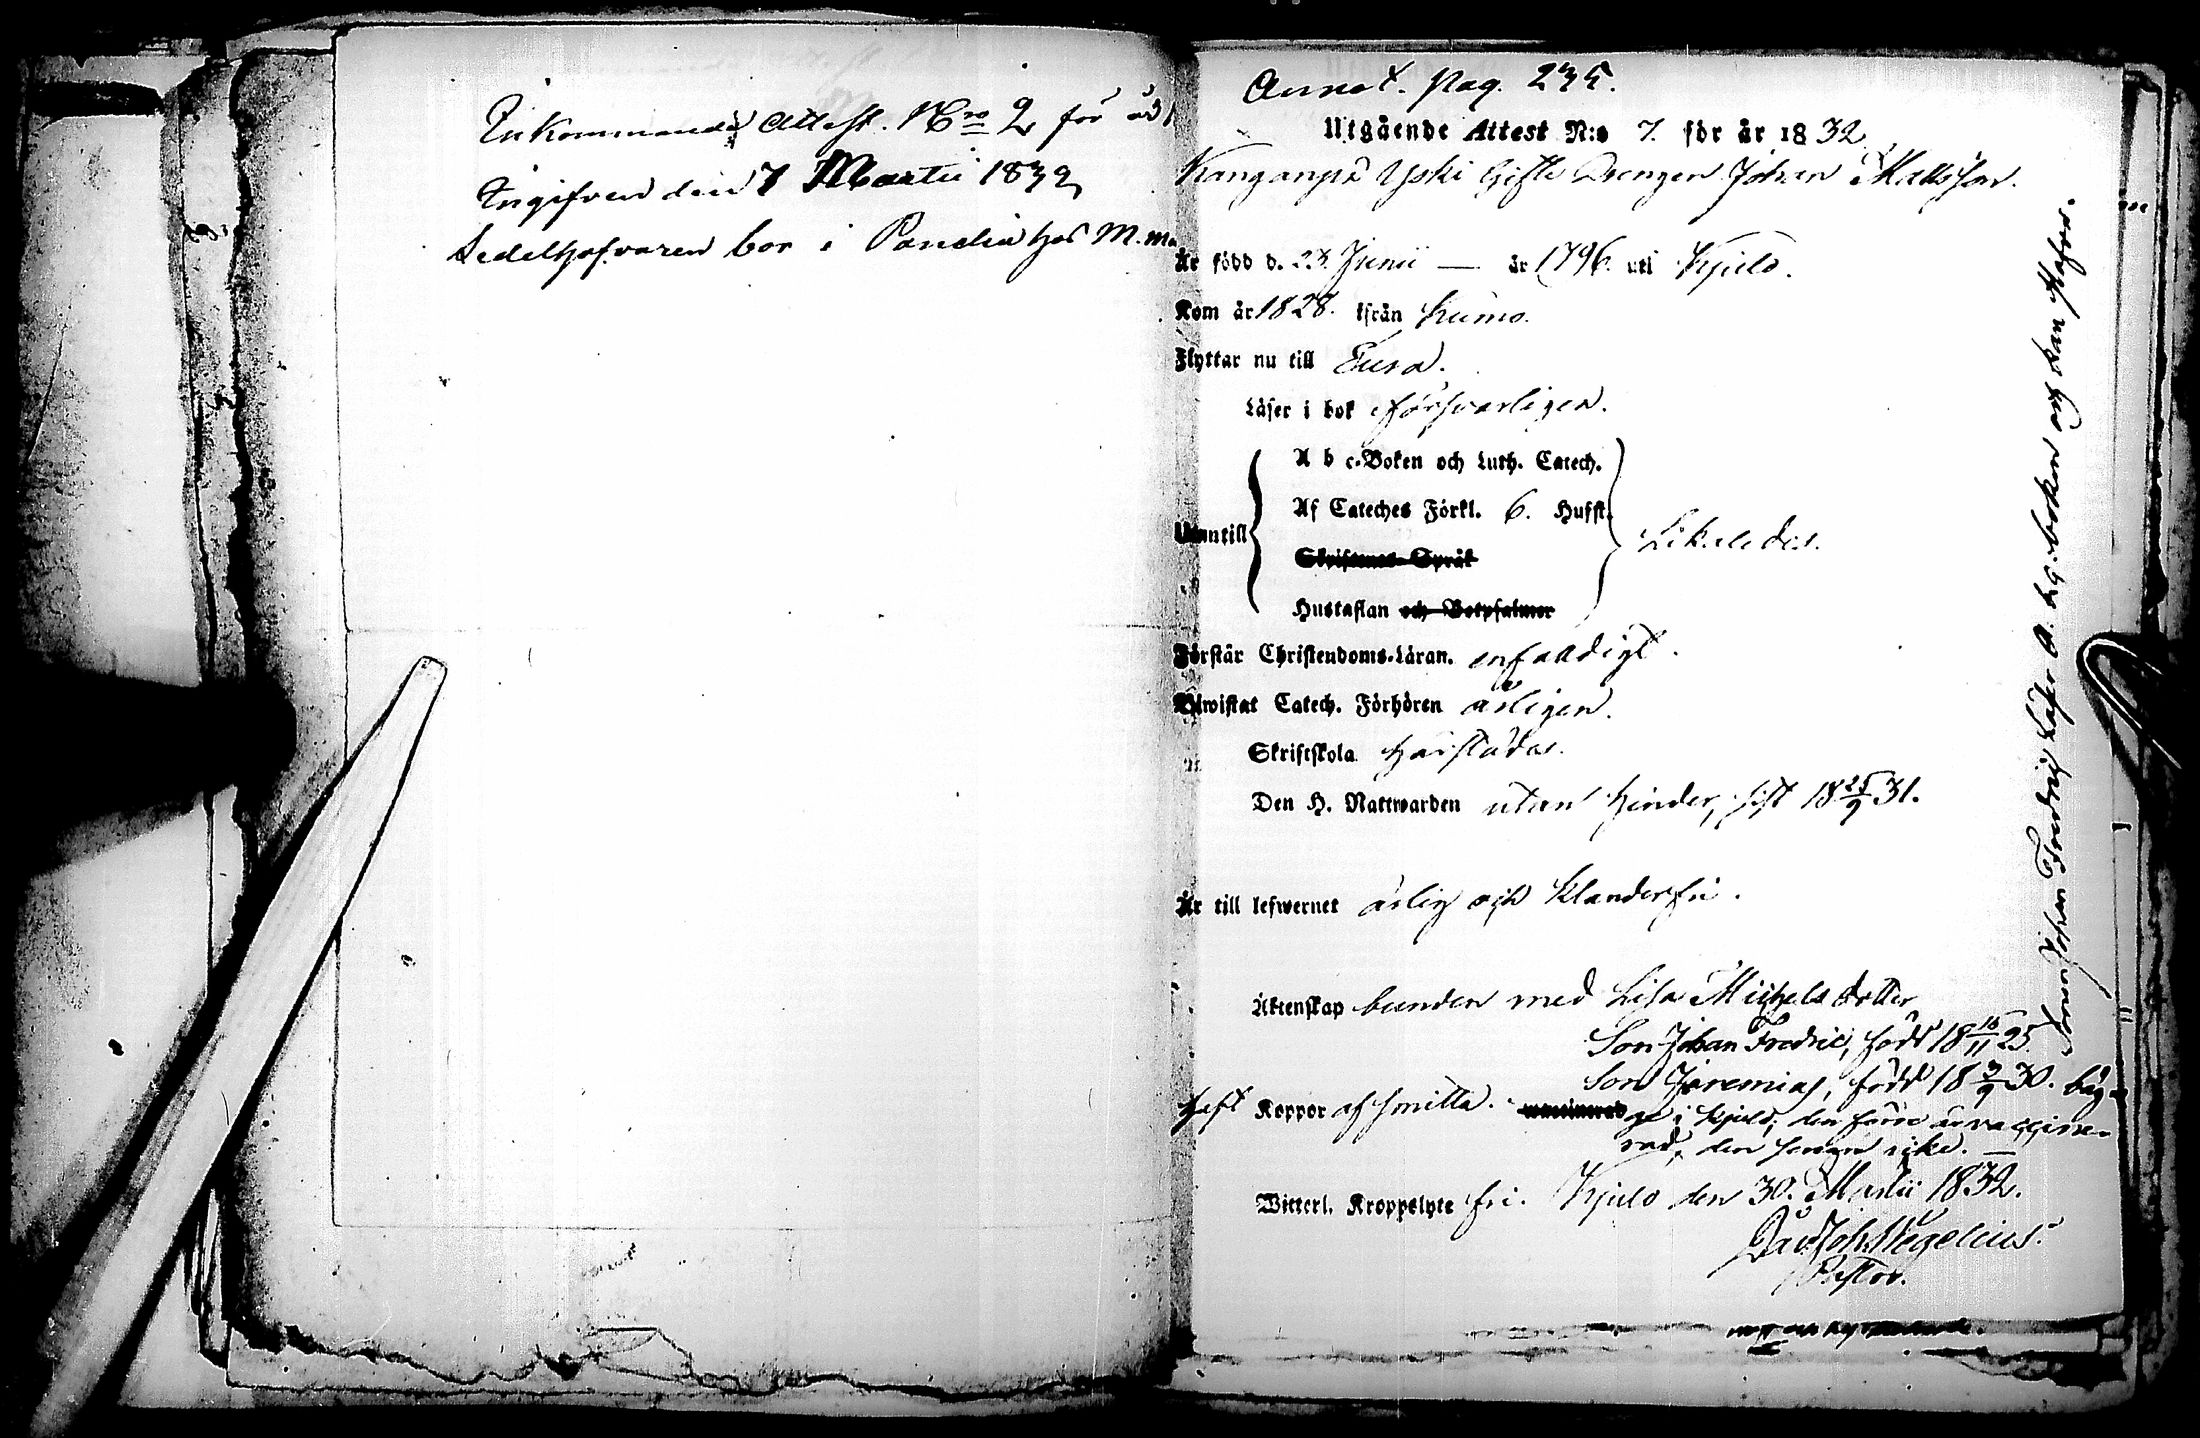 Inkommande Attest. Nro 2 för år
Ingifven den 7 Martii 1832
Sedelhafvaren bor i Panelia hos M. Ma
Annot. pag. 235.
Utgående Attest N:o 7. för år 1832
Kanganpä Yski Gifte Drengen Johan Mattsson.
Är född d. 23. Junii — år 1796. uti Kjulo.
Kom år 1828. ifrån Kumo.
Flyttar nu till Eura.
Läser i bok försvarligen.
A b c-Boken och Luth. Catech.
Af Cateches Förkl. 6. Hufst.
Utantill
Likaledes.
Skriftenes Språk
Hustaflan och Botpsalmer
Förstår Christendoms-Läran. enfaldigt.
Biwistat Catech. Förhören årligen.
Skriftskola härstädes.
Den H. Nattwarden utan hinder, sist 18 25/9 31.
Är till lefwernet ärlig och klanderfri.
Äktenskap bunden med Lisa Michels dotter
Son Johan Fredric, född 18 16/11 25
Son Jeremias, född 18 3/9 30. båg-
haft Koppor af smitta. vaccinerad ge i Kjulo; den förre är vaccine-
rad, den senare icke. —
Witterl. Kroppslyte fri. Kjulo den 30. Martii 1832.
Dav. Joh. Wegelius.
Pastor.
Sonen Johan Fredric läser A. b. c. boken och kan